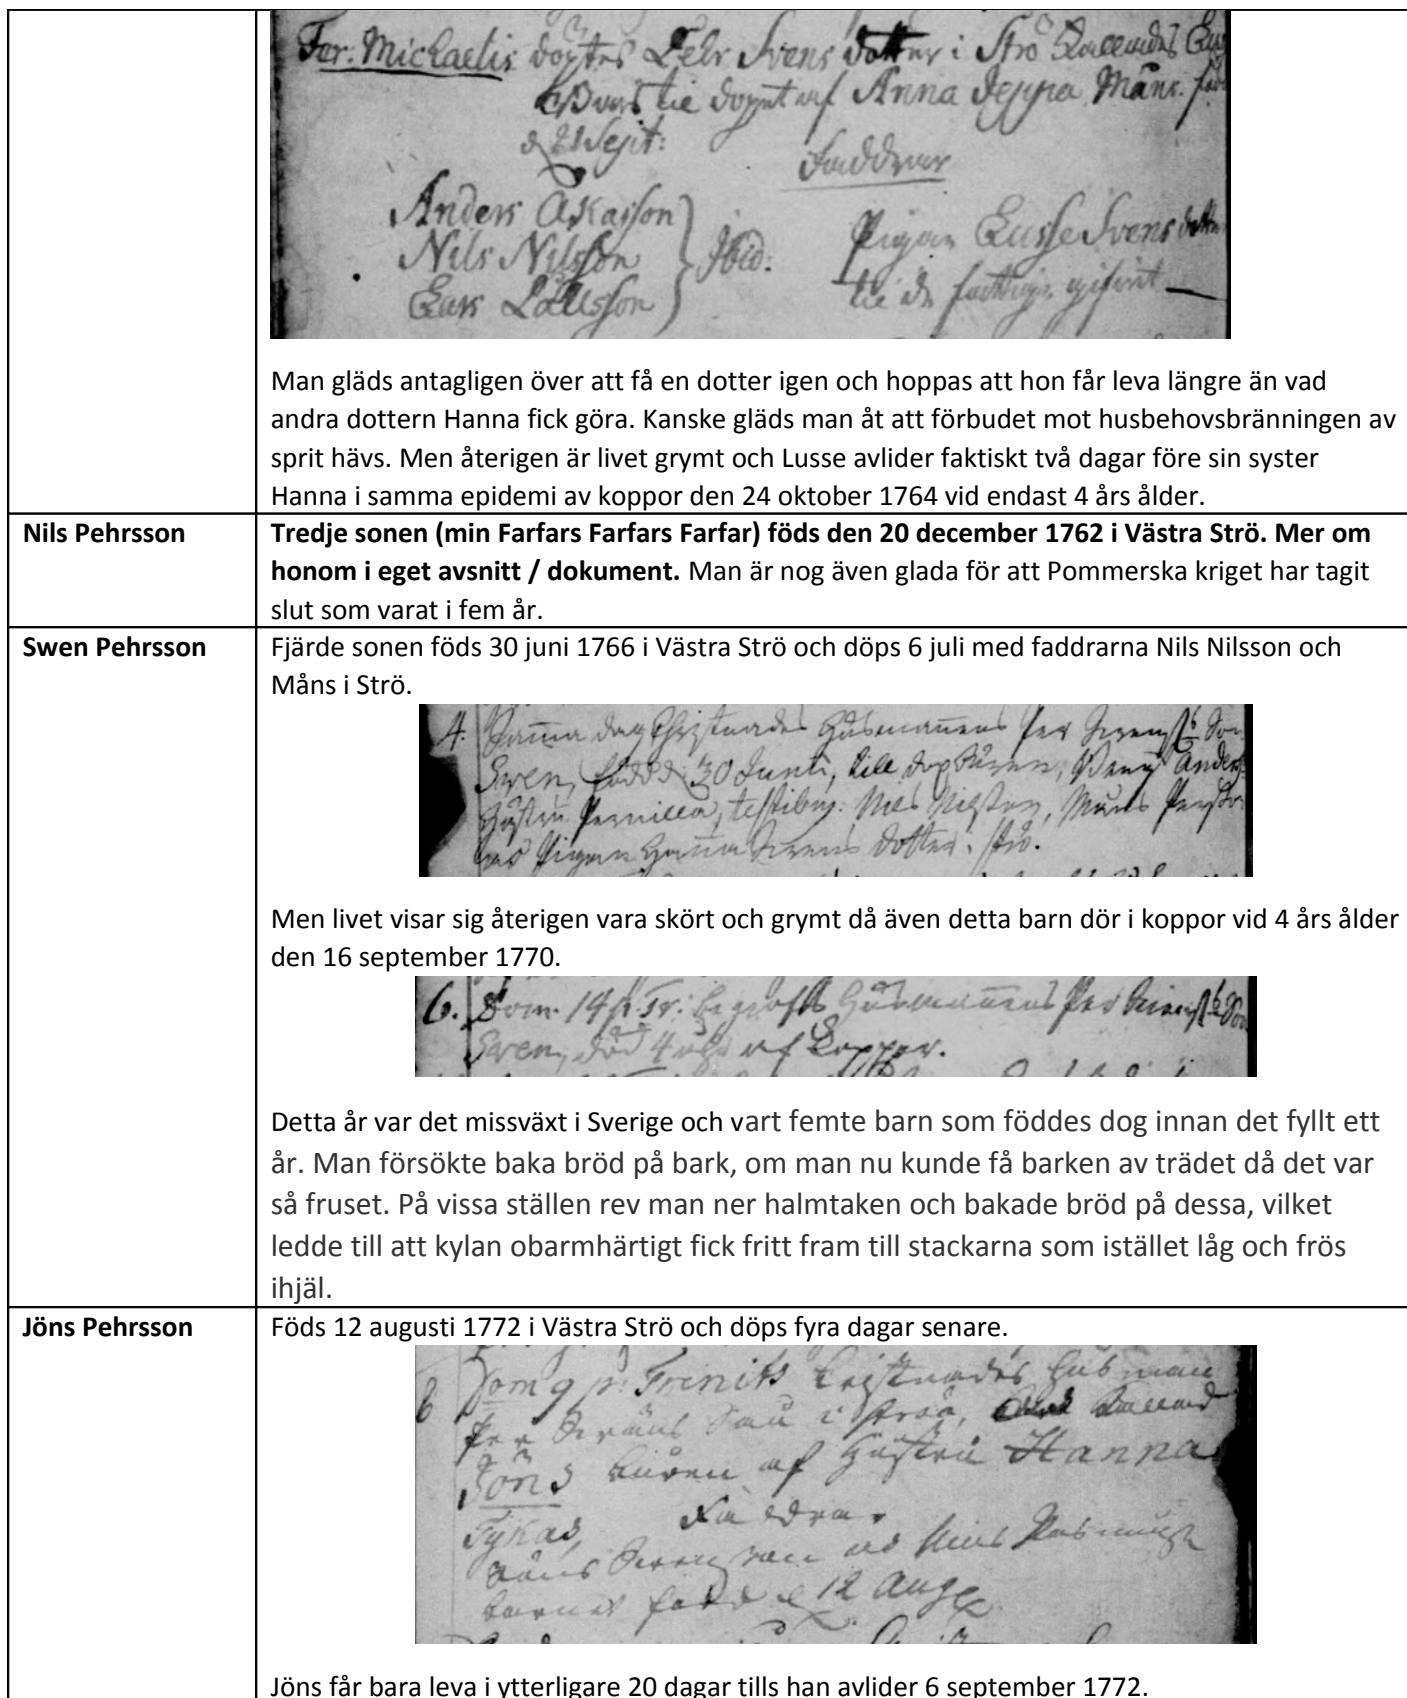 Fer. Michaelis döptes Pehr Svens dotter i Strö kallades
Bars tie dopet af Anna Jeppa Måns. född
d 21 Sept:
Faddrar
Anders Åkasson
Nils Nilsson
Lars
Ibid:
Pigan Lusse Svens dotter
tie de fattiga gifwit
Man gläds antagligen över att få en dotter igen och hoppas att hon får leva längre än vad
andra dottern Hanna fick göra. Kanske gläds man åt att förbudet mot husbehovsbränningen av
sprit hävs. Men återigen är livet grymt och Lusse avlider faktiskt två dagar före sin syster
Hanna i samma epidemi av koppor den 24 oktober 1764 vid endast 4 års ålder.
Nils Pehrsson
Tredje sonen (min Farfars Farfars Farfar) föds den 20 december 1762 i Västra Strö. Mer om
honom i eget avsnitt / dokument. Man är nog även glada för att Pommerska kriget har tagit
slut som varat i fem år.
Swen Pehrsson
Fjärde sonen föds 30 juni 1766 i Västra Strö och döps 6 juli med faddrarna Nils Nilsson och
Måns i Strö.
4. Samma dag Christnades Husmannens Per Svens Son
Swen, född d 30 Junii, till dop buren, Anders
Hustru Pernilla, testibus: Nils Nilsson, Måns Persson
Pigan Hanna Svens dotter i Strö.
Men livet visar sig återigen vara skört och grymt då även detta barn dör i koppor vid 4 års ålder
den 16 september 1770.
6. Dom. 14 p. Tr: begrofs Husmannens Per Svens Son
Swen, död 4 af Koppor.
Detta år var det missväxt i Sverige och vart femte barn som föddes dog innan det fyllt ett
år. Man försökte baka bröd på bark, om man nu kunde få barken av trädet då det var
så fruset. På vissa ställen rev man ner halmtaken och bakade bröd på dessa, vilket
ledde till att kylan obarmhärtigt fick fritt fram till stackarna som istället låg och frös
ihjäl.
Jöns Pehrsson
Föds 12 augusti 1772 i Västra Strö och döps fyra dagar senare.
6 Dom 9 p. Trinits kristnades husman
Per Swäns i Ströö, kallad
Jöns buren af hustru Hanna
Tykas, Faddrar
barnet född d 12 Aug
Jöns får bara leva i ytterligare 20 dagar tills han avlider 6 september 1772.